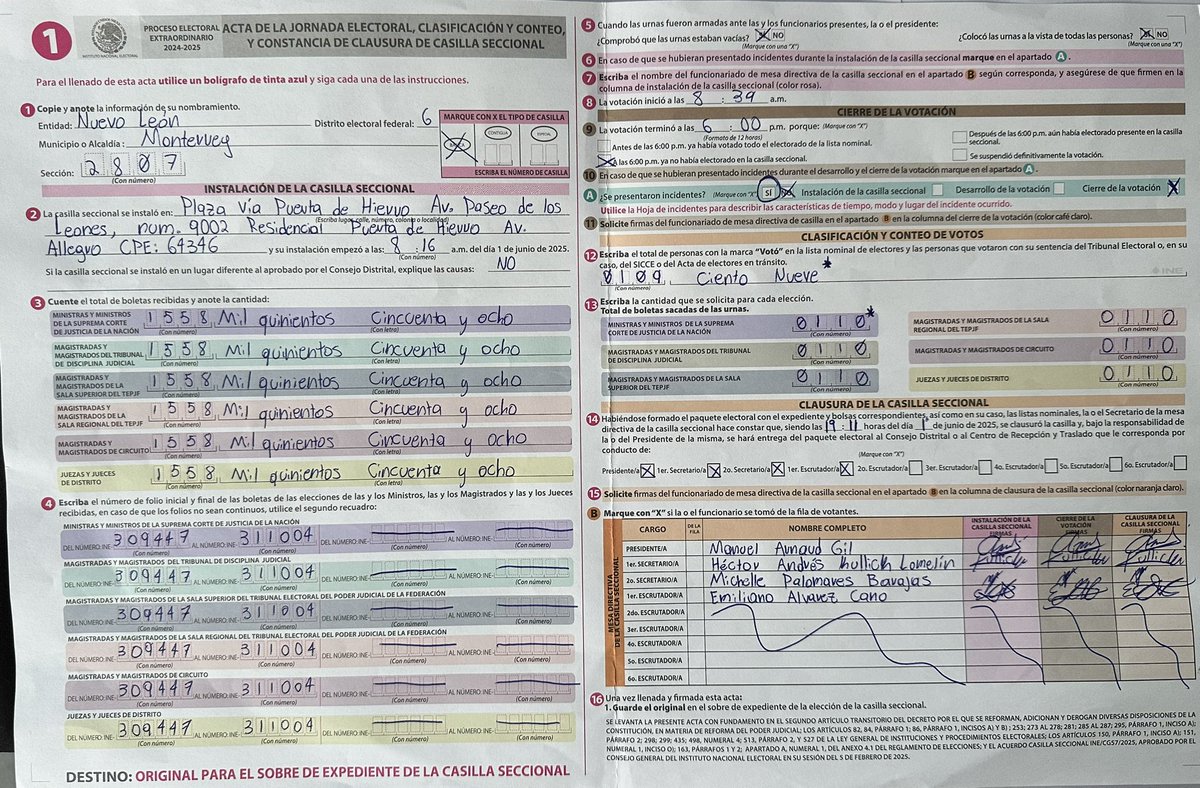 1
INSTITUTO NACIONAL ELECTORAL
PROCESO ELECTORAL
EXTRAORDINARIO
2024-2025
ACTA DE LA JORNADA ELECTORAL, CLASIFICACIÓN Y CONTEO,
Y CONSTANCIA DE CLAUSURA DE CASILLA SECCIONAL
Para el llenado de esta acta utilice un bolígrafo de tinta azul y siga cada una de las instrucciones.
1 Copie y anote la información de su nombramiento.
Entidad: Nuevo León Distrito electoral federal: 6
Municipio o Alcaldía: Monterrey
Sección: 2807
(Con número)
MARQUE CON X EL TIPO DE CASILLA
BÁSICA CONTIGUA ESPECIAL
ESCRIBA EL NÚMERO DE CASILLA
INSTALACIÓN DE LA CASILLA SECCIONAL
2 La casilla seccional se instaló en: Plaza Vía Puerta de Hierro Av. Paseo de los
(Escriba calle, número, colonia o localidad)
Leones, num. 9002 Residencial Puerta de Hierro Av.
Allegro CPE: 64346 y su instalación empezó a las: 8 : 16 a.m. del día 1 de junio de 2025.
(Con número)
Si la casilla seccional se instaló en un lugar diferente al aprobado por el Consejo Distrital, explique las causas: NO
3 Cuente el total de boletas recibidas y anote la cantidad:
MINISTRAS Y MINISTROS DE LA SUPREMA CORTE DE JUSTICIA DE LA NACIÓN 1558 Mil quinientos Cincuenta y ocho
(Con número) (Con letra)
MAGISTRADAS Y MAGISTRADOS DEL TRIBUNAL DE DISCIPLINA JUDICIAL 1558 Mil quinientos Cincuenta y ocho
(Con número) (Con letra)
MAGISTRADAS Y MAGISTRADOS DE LA SALA SUPERIOR DEL TEPJF 1558 Mil quinientos Cincuenta y ocho
(Con número) (Con letra)
MAGISTRADAS Y MAGISTRADOS DE LA SALA REGIONAL DEL TEPJF 1558 Mil quinientos Cincuenta y ocho
(Con número) (Con letra)
MAGISTRADAS Y MAGISTRADOS DE CIRCUITO 1558 Mil quinientos Cincuenta y ocho
(Con número) (Con letra)
JUEZAS Y JUECES DE DISTRITO 1558 Mil quinientos Cincuenta y ocho
(Con número) (Con letra)
4 Escriba el número de folio inicial y final de las boletas de las elecciones de las y los Ministros, las y los Magistrados y las y los Jueces
recibidas, en caso de que los folios no sean continuos, utilice el segundo recuadro:
MINISTRAS Y MINISTROS DE LA SUPREMA CORTE DE JUSTICIA DE LA NACIÓN
DEL NÚMERO: INE- 309447 AL NÚMERO: INE- 311004 DEL NÚMERO: INE- AL NÚMERO: INE-
(Con número) (Con número) (Con número) (Con número)
MAGISTRADAS Y MAGISTRADOS DEL TRIBUNAL DE DISCIPLINA JUDICIAL
DEL NÚMERO: INE- 309447 AL NÚMERO: INE- 311004 DEL NÚMERO: INE- AL NÚMERO: INE-
(Con número) (Con número) (Con número) (Con número)
MAGISTRADAS Y MAGISTRADOS DE LA SALA SUPERIOR DEL TRIBUNAL ELECTORAL DEL PODER JUDICIAL DE LA FEDERACIÓN
DEL NÚMERO: INE- 309447 AL NÚMERO: INE- 311004 DEL NÚMERO: INE- AL NÚMERO: INE-
(Con número) (Con número) (Con número) (Con número)
MAGISTRADAS Y MAGISTRADOS DE LA SALA REGIONAL DEL TRIBUNAL ELECTORAL DEL PODER JUDICIAL DE LA FEDERACIÓN
DEL NÚMERO: INE- 309447 AL NÚMERO: INE- 311004 DEL NÚMERO: INE- AL NÚMERO: INE-
(Con número) (Con número) (Con número) (Con número)
MAGISTRADAS Y MAGISTRADOS DE CIRCUITO
DEL NÚMERO: INE- 309447 AL NÚMERO: INE- 311004 DEL NÚMERO: INE- AL NÚMERO: INE-
(Con número) (Con número) (Con número) (Con número)
JUEZAS Y JUECES DE DISTRITO
DEL NÚMERO: INE- 309447 AL NÚMERO: INE- 311004 DEL NÚMERO: INE- AL NÚMERO: INE-
(Con número) (Con número) (Con número) (Con número)
DESTINO: ORIGINAL PARA EL SOBRE DE EXPEDIENTE DE LA CASILLA SECCIONAL
5 Cuando las urnas fueron armadas ante las y los funcionarios presentes, la o el presidente:
¿Comprobó que las urnas estaban vacías? SÍ NO ¿Colocó las urnas a la vista de todas las personas? SÍ NO
(Marque con una "X") (Marque con una "X")
6 En caso de que se hubieran presentado incidentes durante la instalación de la casilla seccional marque en el apartado A.
7 Escriba el nombre del funcionariado de mesa directiva de la casilla seccional en el apartado B según corresponda, y asegúrese de que firmen en la
columna de instalación de la casilla seccional (color rosa).
8 La votación inició a las 8 : 39 a.m.
CIERRE DE LA VOTACIÓN
9 La votación terminó a las 6 : 00 p.m. porque: (Marque con una "X")
(Formato de 12 horas)
Antes de las 6:00 p.m. ya había votado todo el electorado de la lista nominal.
Después de las 6:00 p.m. aún había electorado presente en la casilla seccional.
A las 6:00 p.m. ya no había electorado en la casilla seccional.
Se suspendió definitivamente la votación.
10 En caso de que se hubieran presentado incidentes durante el desarrollo y el cierre de la votación marque en el apartado A.
A ¿Se presentaron incidentes? (Marque con "X") SÍ NO Instalación de la casilla seccional Desarrollo de la votación Cierre de la votación X
Utilice la Hoja de incidentes para describir las características de tiempo, modo y lugar del incidente ocurrido.
11 Solicite firmas del funcionariado de mesa directiva de casilla en el apartado B en la columna del cierre de la votación (color café claro).
CLASIFICACIÓN Y CONTEO DE VOTOS
12 Escriba el total de personas con la marca "Votó" en la lista nominal de electores y las personas que votaron con su sentencia del Tribunal Electoral o, en su
caso, del SICCE o del Acta de electores en tránsito.
0109 Ciento Nueve *
(Con número) (Con letra)
INE
13 Escriba la cantidad que se solicita para cada elección.
Total de boletas sacadas de las urnas.
MINISTRAS Y MINISTROS DE LA SUPREMA CORTE DE JUSTICIA DE LA NACIÓN 0110*
(Con número)
MAGISTRADAS Y MAGISTRADOS DE LA SALA REGIONAL DEL TEPJF 0110
(Con número)
MAGISTRADAS Y MAGISTRADOS DEL TRIBUNAL DE DISCIPLINA JUDICIAL 0110
(Con número)
MAGISTRADAS Y MAGISTRADOS DE CIRCUITO 0110
(Con número)
MAGISTRADAS Y MAGISTRADOS DE LA SALA SUPERIOR DEL TEPJF 0110
(Con número)
JUEZAS Y JUECES DE DISTRITO 0110
(Con número)
CLAUSURA DE LA CASILLA SECCIONAL
14 Habiéndose formado el paquete electoral con el expediente y bolsas correspondientes, así como en su caso, las listas nominales, la o el Secretario de la mesa
directiva de la casilla seccional hace constar que, siendo las 19 : 11 horas del día 1 de junio de 2025, se clausuró la casilla y, bajo la responsabilidad de
la o del Presidente de la misma, se hará entrega del paquete electoral al Consejo Distrital o al Centro de Recepción y Traslado que le corresponda por
conducto de:
(Marque con "X")
Presidente/a X 1er. Secretario/a X 2o. Secretario/a X 1er. Escrutador/a X 2o. Escrutador/a 3er. Escrutador/a 4o. Escrutador/a 5o. Escrutador/a 6o. Escrutador/a
15 Solicite firmas del funcionariado de mesa directiva de la casilla seccional en el apartado B en la columna de clausura de la casilla seccional (color naranja claro).
B Marque con "X" si la o el funcionario se tomó de la fila de votantes.
CARGO DE LA FILA NOMBRE COMPLETO INSTALACIÓN DE LA CASILLA SECCIONAL FIRMAS CIERRE DE LA VOTACIÓN FIRMAS CLAUSURA DE LA CASILLA SECCIONAL FIRMAS
MESA DIRECTIVA DE LA CASILLA SECCIONAL
PRESIDENTE/A Manuel Arnaud Gil
1er. SECRETARIO/A Héctor Andrés Kullick Lomelín
2o. SECRETARIO/A Michelle Palomares Barajas
1er. ESCRUTADOR/A Emiliano Alvarez Cano
2do. ESCRUTADOR/A
3er. ESCRUTADOR/A
4o. ESCRUTADOR/A
5o. ESCRUTADOR/A
6o. ESCRUTADOR/A
16 Una vez llenada y firmada esta acta:
1. Guarde el original en el sobre de expediente de la elección de la casilla seccional.
SE LEVANTA LA PRESENTE ACTA CON FUNDAMENTO EN EL SEGUNDO ARTÍCULO TRANSITORIO DEL DECRETO POR EL QUE SE REFORMAN, ADICIONAN Y DEROGAN DIVERSAS DISPOSICIONES DE LA
CONSTITUCIÓN, EN MATERIA DE REFORMA DEL PODER JUDICIAL; LOS ARTÍCULOS 82, 84, PÁRRAFO 1; 86, PÁRRAFO 1, INCISOS A) Y B); 253; 273 AL 278; 281; 285 AL 287; 295, PÁRRAFO 1, INCISO A);
PÁRRAFO 2; 298; 299; 435; 498, NUMERAL 4; 513, PÁRRAFO 2, Y 527 DE LA LEY GENERAL DE INSTITUCIONES Y PROCEDIMIENTOS ELECTORALES; LOS ARTÍCULOS 150, PÁRRAFO 1, INCISO A); 151,
NUMERAL 1, INCISO O); 163, PÁRRAFOS 1 Y 2; APARTADO A, NUMERAL 1, DEL ANEXO 4.1 DEL REGLAMENTO DE ELECCIONES; Y EL ACUERDO CASILLA SECCIONAL INE/CG57/2025, APROBADO POR EL
CONSEJO GENERAL DEL INSTITUTO NACIONAL ELECTORAL EN SU SESIÓN DEL 5 DE FEBRERO DE 2025.